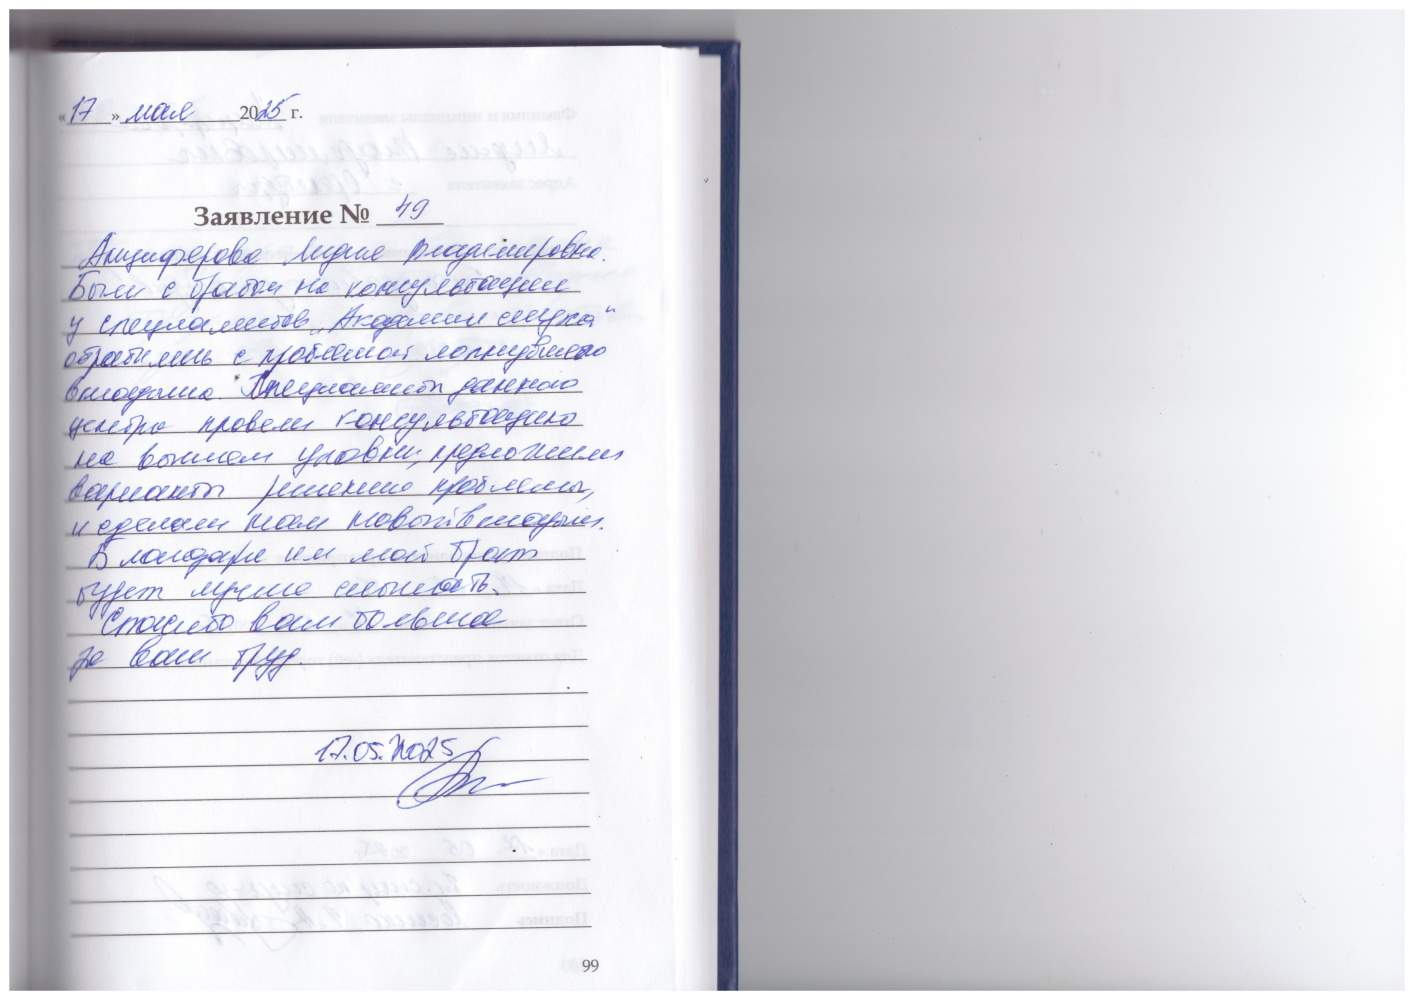 «17» мая 2025 г.
Заявление № 49
Анциферова Лидия Владимировна.
Были с братом на консультации
у специалистов „Академии слуха“
обратились с проблемой лопнувшего
вкладыша. Специалисты данного
центра провели консультацию
на высшем уровни, предложили
варианты решению проблемы,
и сделали нам новый вкладыш.
Благодаря им мой брат
будет лучше слышать.
Спасибо вам большое
за ваш труд.
17.05.2025
99